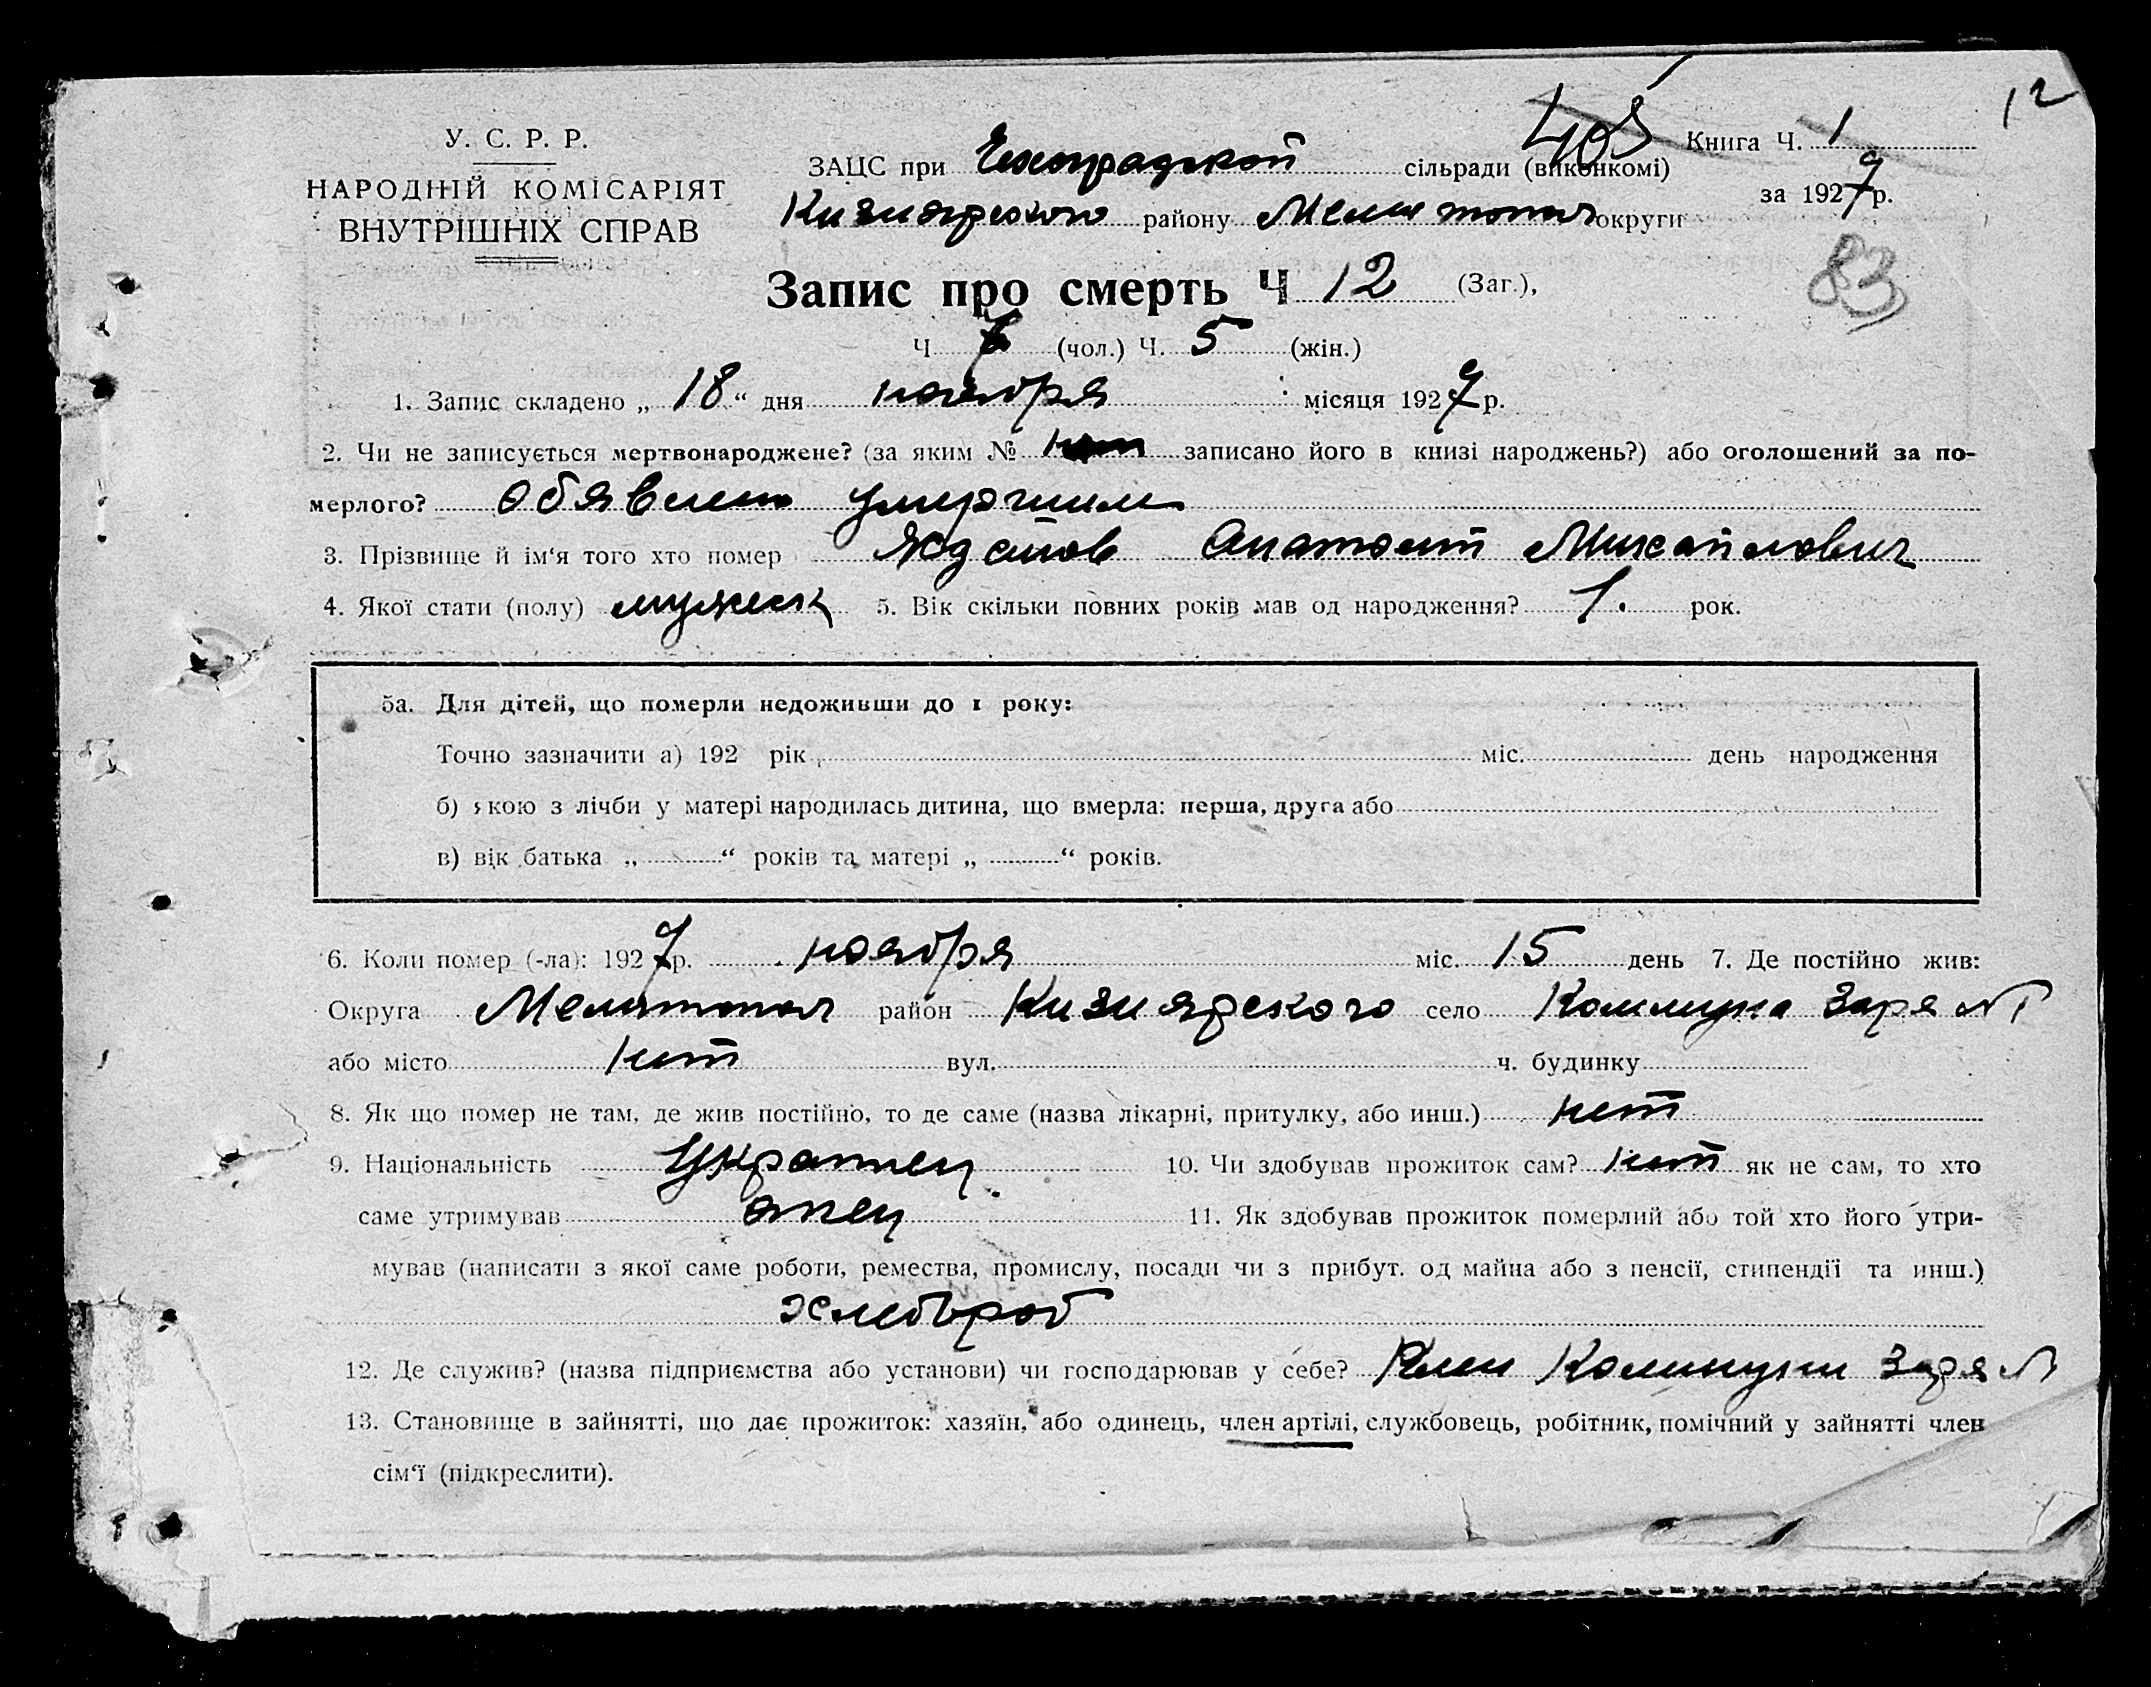 12
405
У. С. Р. Р.
НАРОДНІЙ КОМІСАРІЯТ
ВНУТРІШНІХ СПРАВ
Книга Ч. 1
за 1927 р.
ЗАЦС при Чехоградской сільради (виконкомі)
Кизиярского району Мелитопол округи
83
Запис про смерть Ч 12 (Заг.),
Ч. 7 (чол.) Ч. 5 (жін.)
1. Запис складено „ 18 “ дня ноября місяця 1927 р.
2. Чи не записується мертвонароджене? (за яким № нет записано його в книзі народжень?) або оголошений за по-
мерлого? Обявлен умершим
3. Прізвище й ім‘я того хто помер Анатолий Михайлович
4. Якої стати (полу) мужск 5. Вік скільки повних років мав од народження? 1. рок.
5а. Для дітей, що померли недоживши до 1 року:
Точно зазначити а) 192 рік міс. день народження
б) якою з лічби у матері народилась дитина, що вмерла: перша, друга або
в) вік батька „ “ років та матері „ “ років.
6. Коли помер (-ла): 1927 р. ноября міс. 15 день 7. Де постійно жив:
Округа Мелитопол район Кизиярского село Коммуна Заря №1
або місто нет вул. ч. будинку
8. Як що помер не там, де жив постійно, то де саме (назва лікарні, притулку, або инш.) нет
9. Національність Украинец 10. Чи здобував прожиток сам? нет як не сам, то хто
саме утримував отец 11. Як здобував прожиток померлий або той хто його утри-
мував (написати з якої саме роботи, ремества, промислу, посади чи з прибут. од майна або з пенсії, стипендії та инш.)
хлебороб
12. Де служив? (назва підприємства або установи) чи господарював у себе? Член Коммуни Заря №1
13. Становище в зайнятті, що дає прожиток: хазяїн, або одинець, член артілі, службовець, робітник, помічний у зайнятті член
сім‘ї (підкреслити).